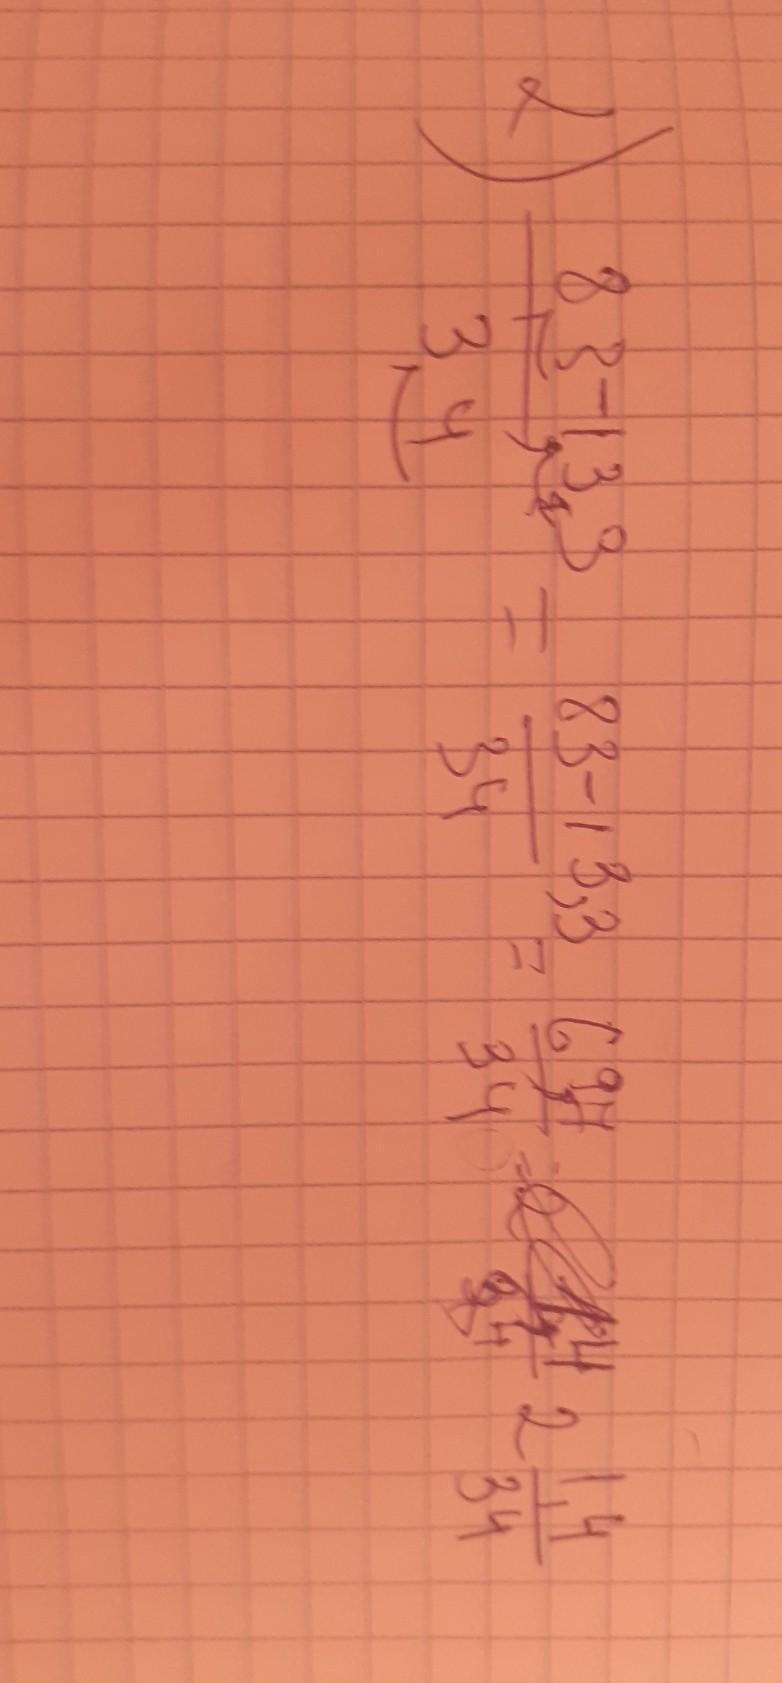 2) 83-13,3 / 34 = 83-13,3 / 34 = 69,7 / 34 = 2 1,4 / 34